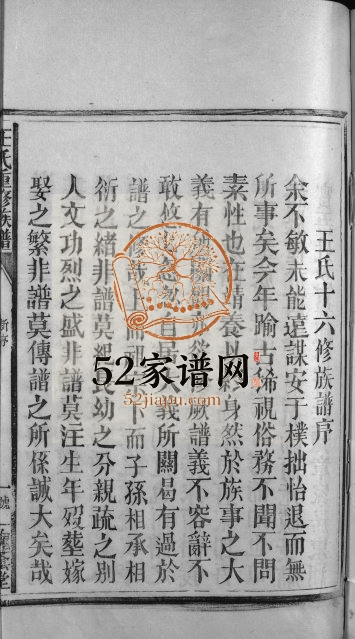 王氏十六修族譜序
余不敏未能遠謀安于樸拙怡退而無
所事矣今年踰古稀視俗務不聞不問
素性也在靜養以身然於族事之大
義有族譜義不容辭不
敢義所關曷有過於
譜之下而子孫相承相
衍之緒非譜莫長幼之分親疏之別
人文功烈之盛非譜莫注生年歿塟嫁
娶之繁非譜莫傳譜之所係誠大矣哉
王氏重修族譜
新序
一號
52家谱网
www.52jiapu.com